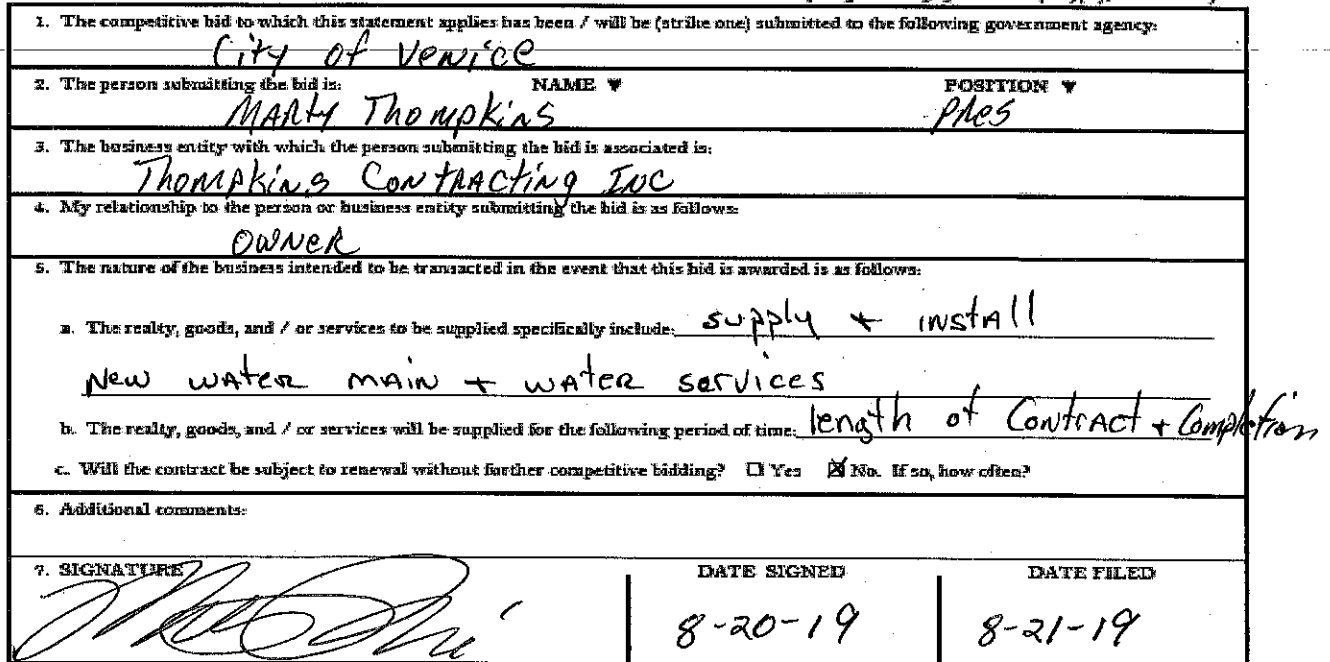 1. The competitive bid to which this statement applies has been / will be (strike one) submitted to the following government agency:
City of Venice
2. The person submitting the bid is: NAME ▼ POSITION ▼
MARty Thompkins Pres
3. The business entity with which the person submitting the bid is associated is:
Thompkins Contracting Inc
4. My relationship to the person or business entity submitting the bid is as follows:
OWNER
5. The nature of the business intended to be transacted in the event that this bid is awarded is as follows:
a. The realty, goods, and / or services to be supplied specifically include: supply + install
New water main + water services
b. The realty, goods, and / or services will be supplied for the following period of time: length of Contract + Completion
c. Will the contract be subject to renewal without further competitive bidding? ☐ Yes ☒ No. If so, how often?
6. Additional comments:
7. SIGNATURE DATE SIGNED DATE FILED
8-20-19 8-21-19